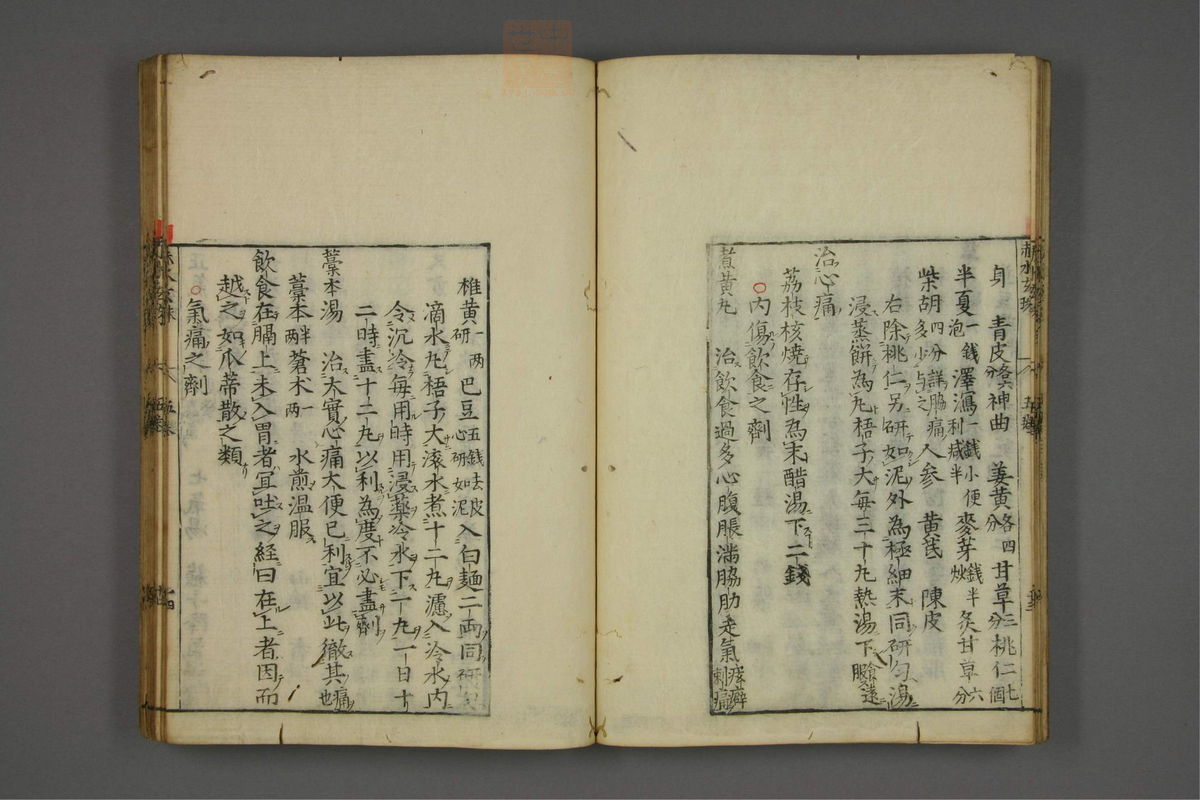 身　青皮各二分神曲　姜黃各四分甘草三分桃仁七個
半夏一錢泡澤瀉一錢小便利减半麥芽錢半炒炙甘草六分
柴胡四分詳脇痛多少与之人参　黄芪　陳皮
右除桃仁另研如泥外為極細末同研匀湯
浸蒸餅為丸梧子大每三十丸熱湯下食遠服
治心痛
荔枝核燒存性為末醋湯下二錢
○内傷飲食之劑
煮黃丸　治飲食過多心腹脹滿脇肋走氣痃癖刺痛
椎黃一兩研巴豆五錢去皮心研如泥入白麺二兩同研匀
滴水丸梧子大滚水煮十二丸濾入冷水内
令沉冷每用時用浸藥冷水下一丸一日十
二時盡十二丸以利為度不必盡劑
藁本湯　治大實心痛大便已利宜以此徹其痛也
藁本半兩蒼术一兩　水煎温服
飲食在膈上未入胃者宜吐之経曰在上者因而
越之如瓜蒂散之類
○氣痛之劑